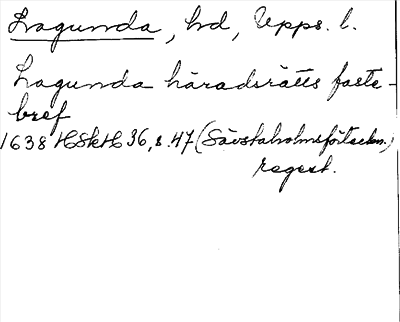 Lagunda, hd, Upps. l.
Lagunda häradsrätts faste-
bref
1638 HSkH 36, s. 47 (Sävstaholmsförteckn.)
regest.